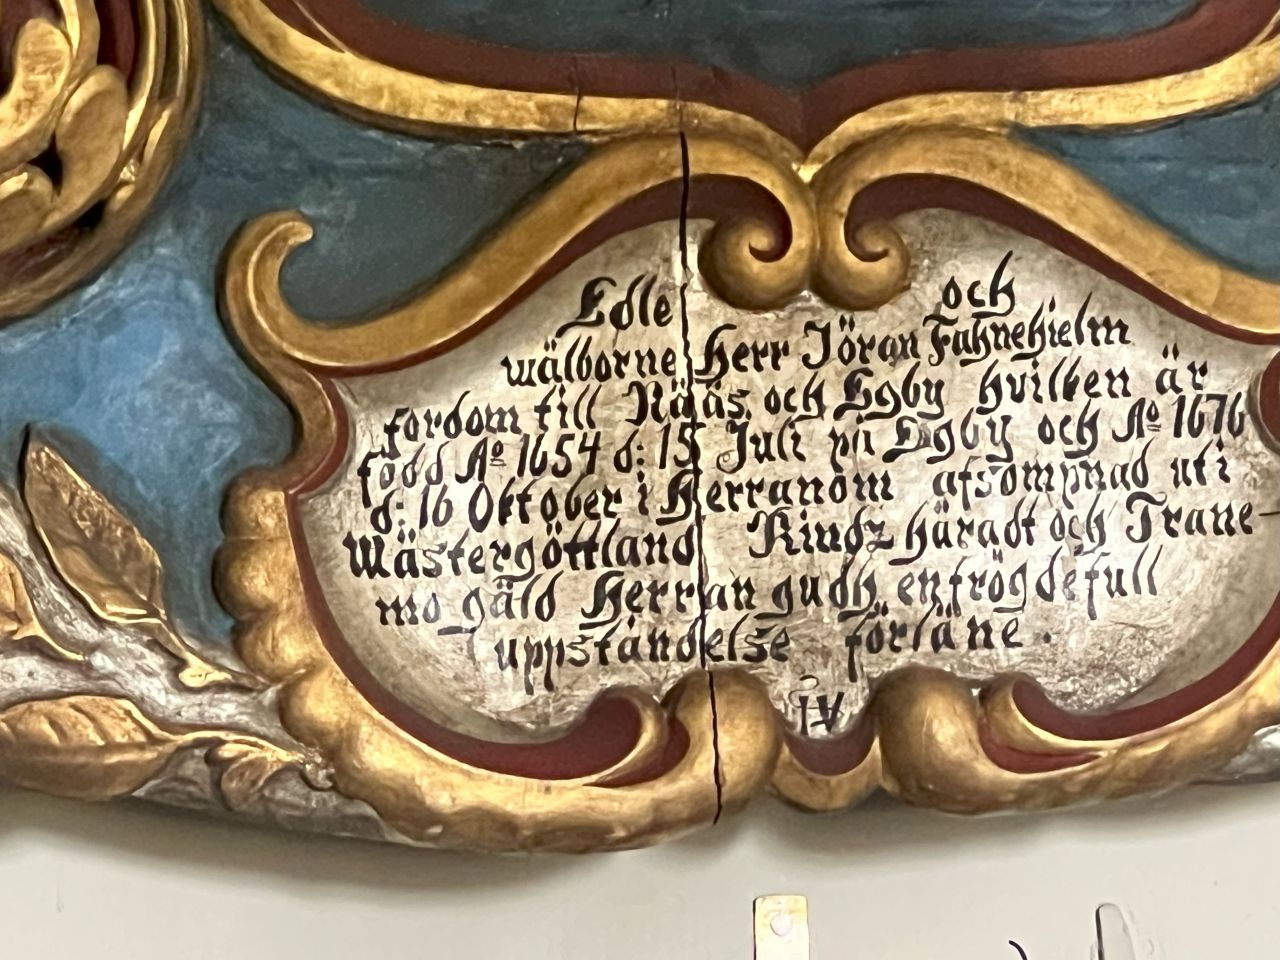 Edle och
wälborne Herr Jöran Fahnehielm
fordom till Nääs och Egby hvilken är
född Aº 1654 d: 15 Juli på Egby och Aº 1676
d: 16 Oktober i Herranom afsompnad uti
Wästergöttland Kindz häradt och Trane-
mo gäld Herran gudh en frögdefull
uppståndelse förläne.